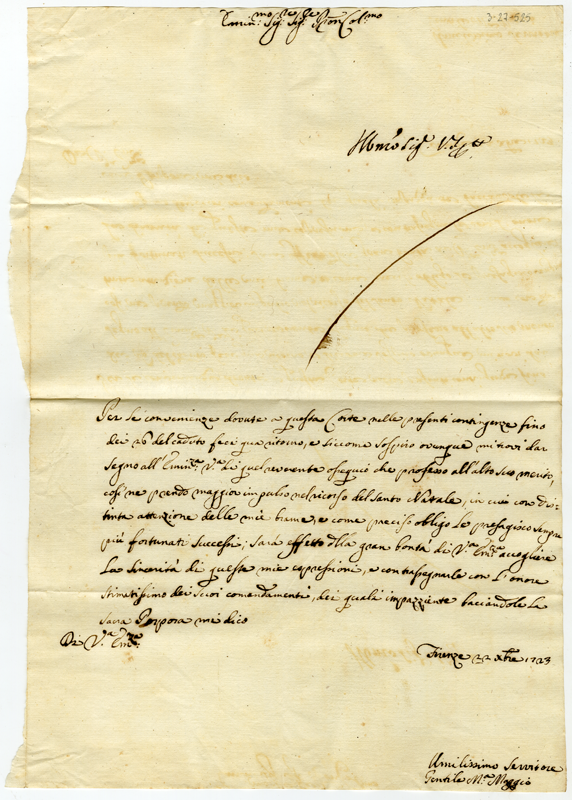 Emin:mo Sig.re Sig.re P̃ron Col.mo
3-27-525
Per le convenienze dovute a questa Corte nelle presenti contingenze fino
dei 26 del caduto feci qua ritorno, e siccome sospiro ovunque mi trovi dar
segno all'Emin.za V.a di quel reverente ossequio che professo all'alto suo merito,
così ne prendo maggior impulso nel ricorso del Santo Natale, in cui con dis:
tinta attenzione delle mie brame, e come preciso obligo le presagisco sempre
più fortunati successi; sarà effetto d̃lla gran bontà di V.a Em.za accogliere
la sincerità di queste mie espressioni, e contrasegnarle con l'onore
stimatissimo dei suoi comandamenti, dei quali impaziente baciandole la
Sacra Porpora mi dico
Di V.a Em.za
Firenze 22 xbre 1723
Umilissimo Servitore
Gentile M.a Maggio